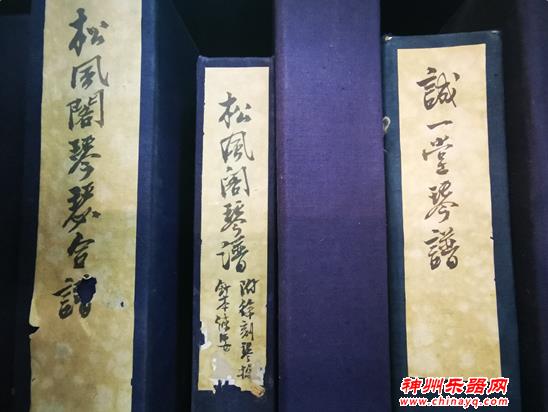 松風閣琴瑟合譜
松風閣琴譜
附徐刻琴
鈔本
誠一堂琴譜
神州乐器网
www.chinayq.com